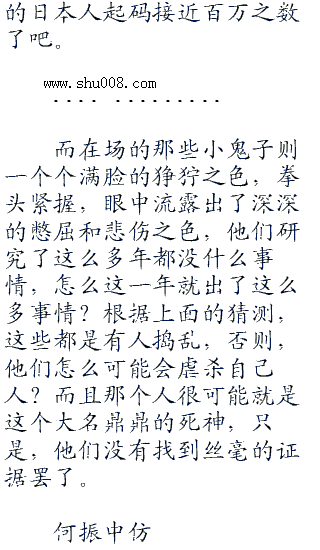 的日本人起码接近百万之数
了吧。
www.shu008.com
···· ·········
而在场的那些小鬼子则
一个个满脸的狰狞之色，拳
头紧握，眼中流露出了深深
的憋屈和悲伤之色，他们研
究了这么多年都没什么事
情，怎么这一年就出了这么
多事情？根据上面的猜测，
这些都是有人捣乱，否则，
他们怎么可能会虐杀自己
人？而且那个人很可能就是
这个大名鼎鼎的死神，只
是，他们没有找到丝毫的证
据罢了。
何振中仿